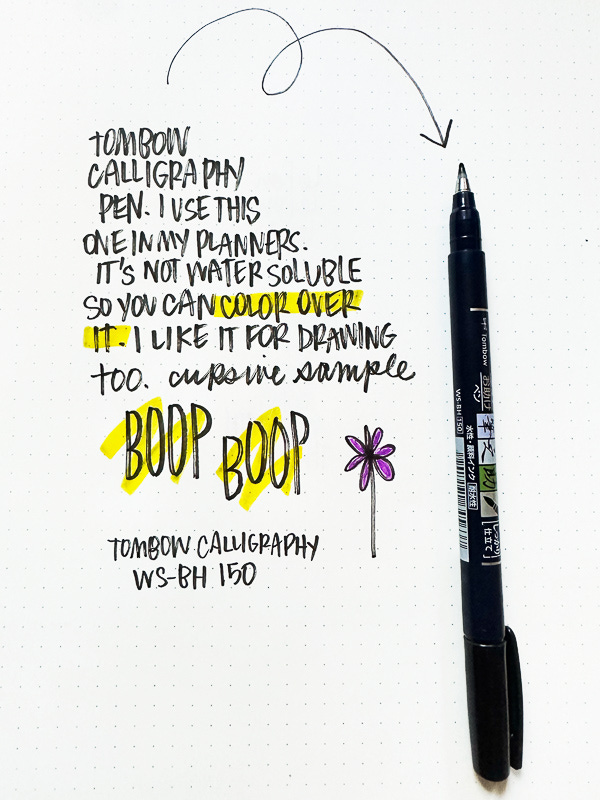 TOMBOW
CALLIGRAPHY
PEN. I USE THIS
ONE IN MY PLANNERS.
IT'S NOT WATER SOLUBLE
SO YOU CAN COLOR OVER
IT. I LIKE IT FOR DRAWING
TOO. cursive sample
BOOP BOOP
TOMBOW CALLIGRAPHY
WS-BH 150
Tombow
WS-BH[150]
水性・顔料インク[耐水性]
ペン
筆文
しっかり
仕立て